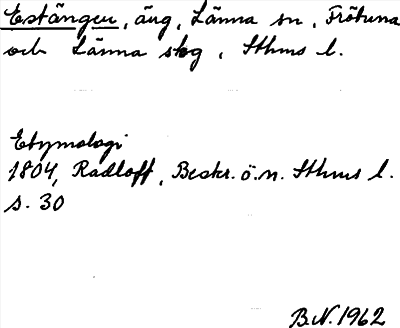 Estängen, äng, Länna sn, Frötuna
och Länna skg, Sthms l.
Etymologi
1804, Radloff, Beskr. ö. n. Sthms l.
s. 30
B.N. 1962